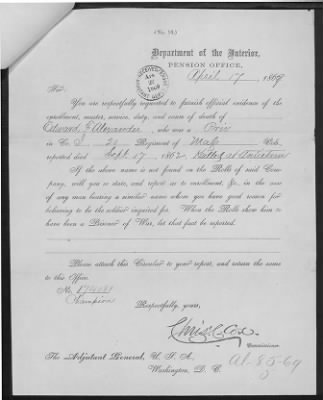 (No. 14.)
Department of the Interior,
PENSION OFFICE,
April 17, 1869
Sir:
You are respectfully requested to furnish official evidence of the
enrollment, muster, service, duty, and cause of death of
Edward F. Alexander, who was a Priv
in Co. I 20 Regiment of Mass Vols.
reported died Sept. 17, 1862, Killed at Antietam
If the above name is not found on the Rolls of said Com-
pany, will you so state, and report as to enrollment, &c., in the case
of any man bearing a similar name whom you have good reason for
believing to be the soldier inquired for. When the Rolls show him to
have been a Prisoner of War, let that fact be reported.
Please attach this Circular to your report, and return the same
to this Office.
No. 174081
Respectfully, yours,
Chris. C. Cox
Commissioner.
The Adjutant General, U. S. A.
Washington, D. C.